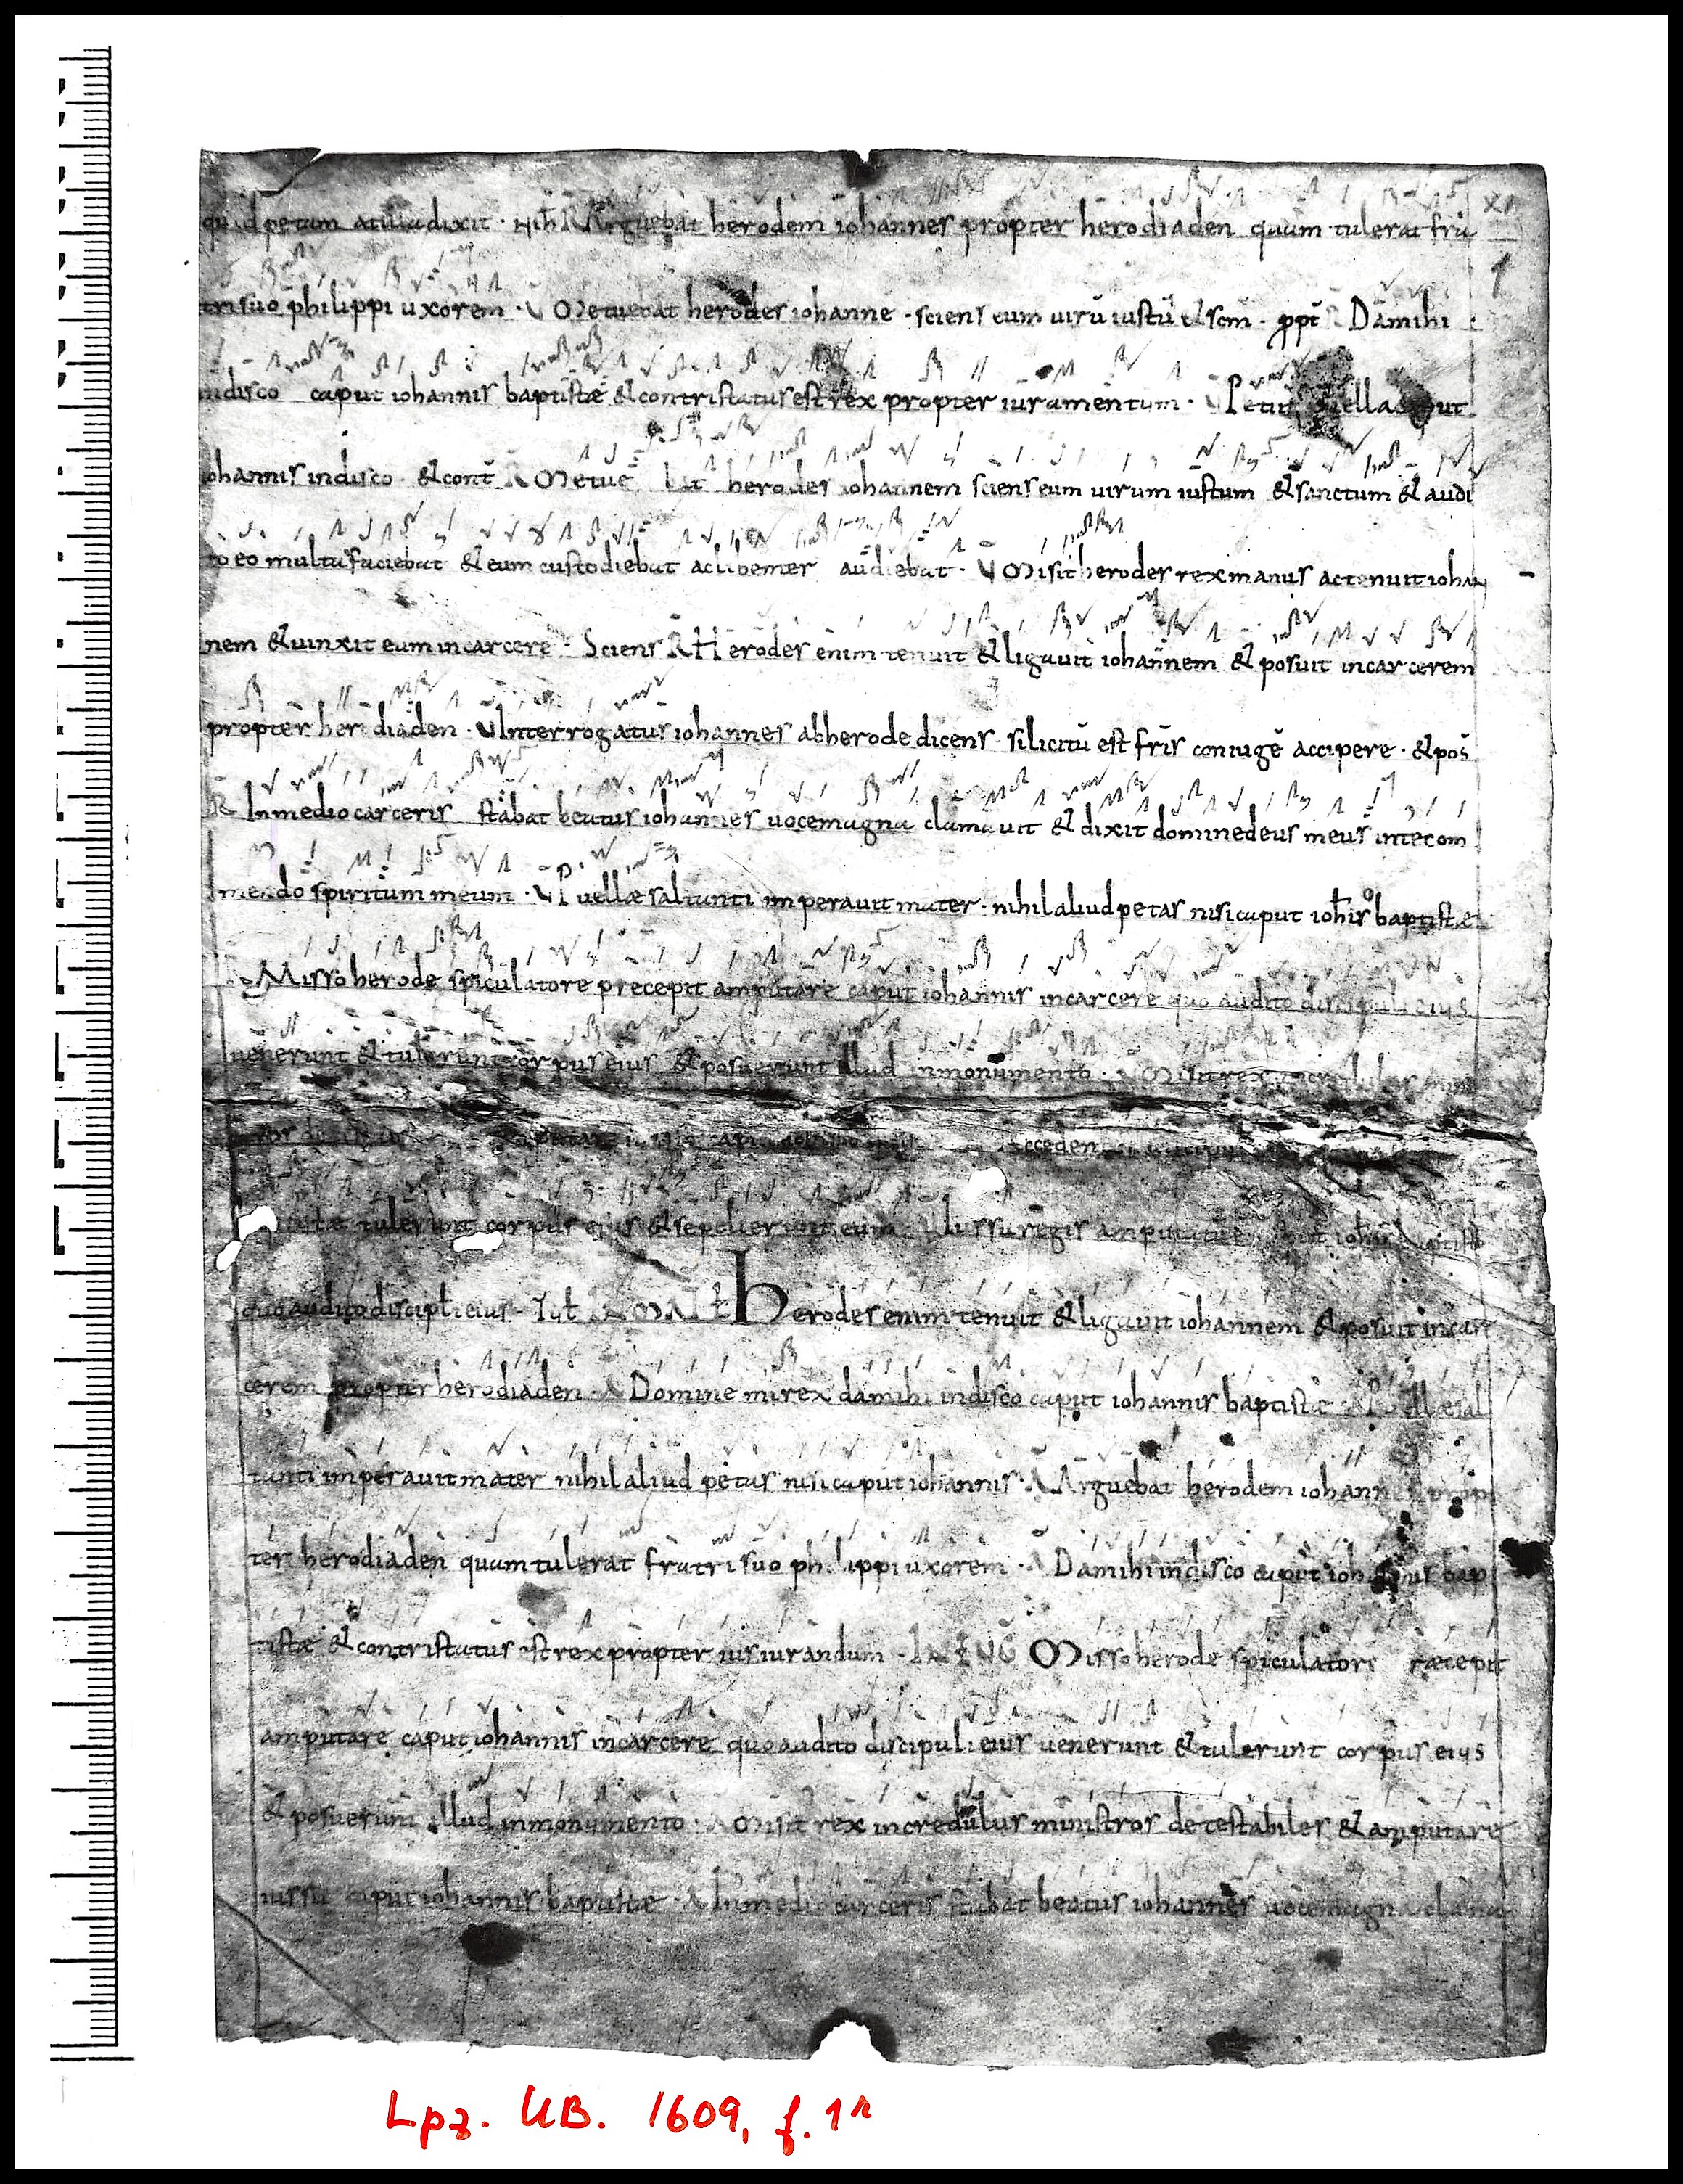 quid petam at illa dixit · nih R Arguebat herodem iohannes propter herodiaden quam tulerat fra
XI
1
tri suo philippi uxorem · V Metuebat herodes iohanne · sciens eum uirū iustū & scm̄ · ꝓpt R Da mihi
in disco caput iohannis baptistæ & contristatus est rex propter iuramentum · V Petiit puella caput
iohannis in disco & cont̄ R Metue bat herodes iohannem sciens eum uirum iustum & sanctum & audi
to eo multa faciebat & eum custodiebat ac libenter audiebat · V Misit herodes rex manus ac tenuit iohan
nem & uinxit eum in carcere · Sciens R Herodes enim tenuit & ligauit iohannem & posuit in carcerem
propter herodiaden · V Interrogatus iohannes ab herode dicens si licitū est fris coniugē accipere · & pos̄
R In medio carceris stabat beatus iohannes uoce magna clamauit & dixit domine deus meus in te com
mendo spiritum meum · V Puellæ saltanti imperauit mater · nihil aliud petas nisi caput ioħis baptistæ
Misso herode spiculatore precepit amputare caput iohannis in carcere quo audito discipuli eius
uenerunt & tulerunt corpus eius & posuerunt illud in monumento · V Misit rex
acceden
tulerunt corpus eius & sepelierunt eum · V Iussu regis
quo audito discipłi eius · Herodes enim tenuit & ligauit iohannem & posuit in car
cerem propter herodiaden · A Domine mi rex da mihi in disco caput iohannis baptistæ · A Puellæ sal
tanti imperauit mater nihil aliud petas nisi caput iohannis · A Arguebat herodem iohannes prop
ter herodiaden quam tulerat fratri suo philippi uxorem · A Da mihi in disco caput iohannis bap
tistæ & contristatus est rex propter iusiurandum · IN EUG Misso herode spiculatore præcepit
amputare caput iohannis in carcere quo audito discipuli eius uenerunt & tulerunt corpus eius
& posuerunt illud in monumento · A Misit rex incredulus ministros detestabiles & amputare
iussit caput iohannis baptistæ · A In medio carceris stabat beatus iohannes uoce magna clama
Lpz. UB. 1609, f. 1r